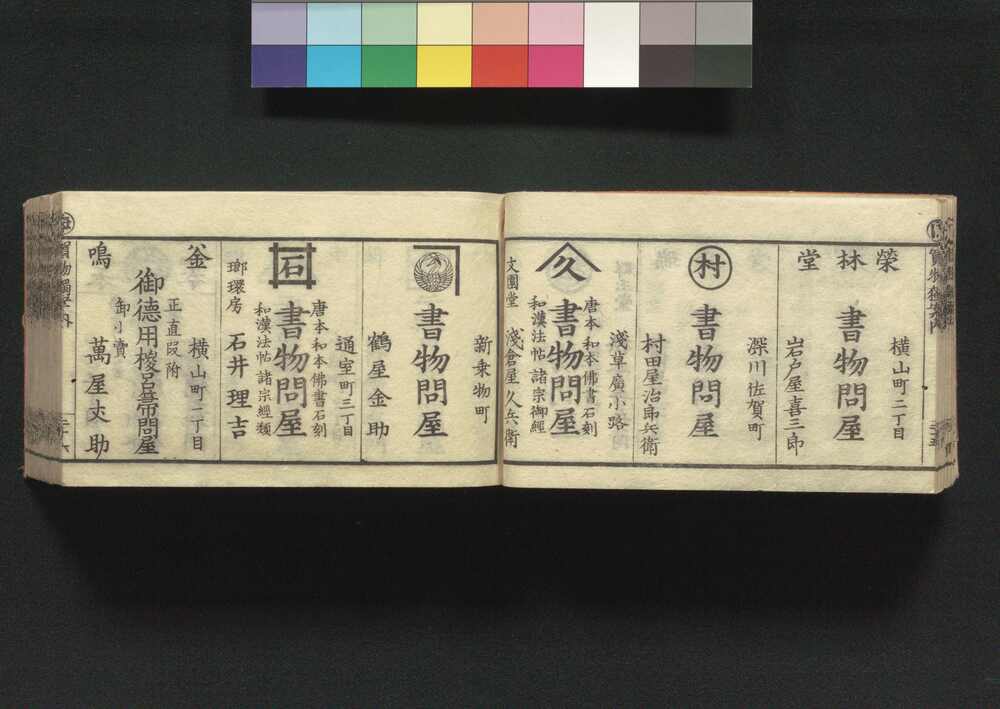 榮林堂
横山町二丁目
書物問屋
岩戸屋喜三郎
村
深川佐賀町
書物問屋
村田屋治郎兵衛
久
淺草廣小路
唐本和本佛書石刻
書物問屋
和漢法帖諸宗御經
文園堂
淺倉屋久兵衛
新乗物町
書物問屋
鶴屋金助
石
通室町三丁目
唐本和本佛書石刻
書物問屋
和漢法帖諸宗經類
瑯環房
石井理吉
釜
横山町二丁目
正直叚附
御德用椶呂箒問屋
卸小賣
鳴
萬屋丈助